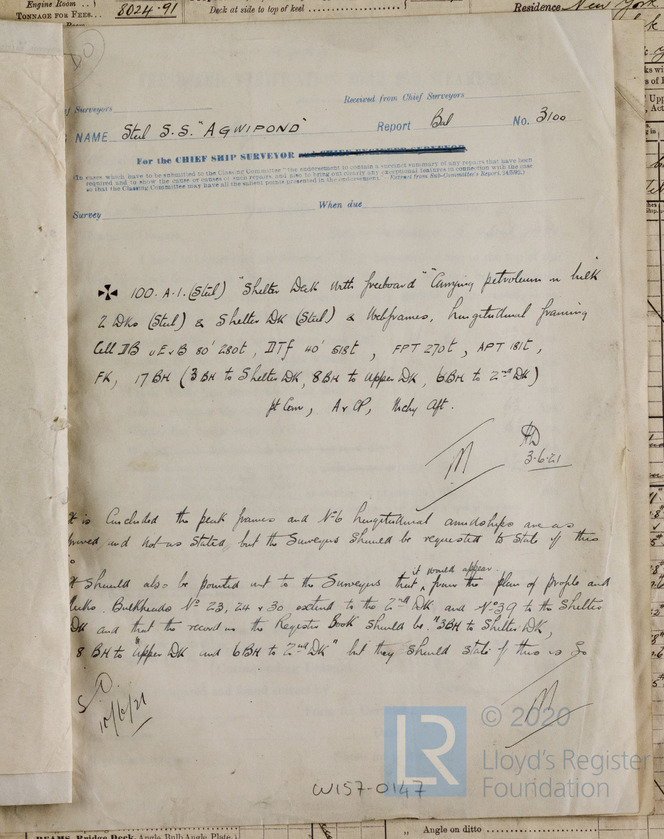 Engine Room ..
TONNAGE FOR FEES...
8024·91
Deck at side to top of keel
Residence New York
DO
Surveyors
Received from Chief Surveyors
NAME Steel S.S. "AGWIPOND" Report Bal No. 3100
For the CHIEF SHIP SURVEYOR
(In cases which have to be submitted to the Classing Committee "the endorsement to contain a succinct summary of any repairs that have been
required and to show the cause or causes of such repairs, and also to bring out clearly any exceptional features in connection with the case
so that the Classing Committee may have all the salient points presented in the endorsement." Extract from Sub-Committee's Report,
Survey When due
✠ 100. A.1. (Steel) "Shelter Deck with freeboard" "Carrying petroleum in bulk
2 Dks (Steel) & Shelter Dk (Steel) & Webframes, longitudinal framing
Cell DB uE&B 80' 280t, DTf 40' 518t, FPT 270t, APT 181t,
FK, 17 BH (3 BH to Shelter Dk, 8BH to upper Dk, 6BH to 2nd Dk)
pt Cem, A & CP, Mchy Aft.
3·6·21
It is Concluded the peak frames and No 6 longitudinal amidships are as
and not as stated, but the Surveyors should be requested to state if this
It should also be pointed out to the Surveyors that, it would appear, from the plan of profile and
decks. Bulkheads No 23, 24 & 30 extend to the 2nd Dk and No 39 to the Shelter
Dk and that the record in the Register Book should be "3BH to Shelter Dk,
8 BH to upper Dk and 6BH to 2nd Dk" but they should state if this is so
10/6/21
LR
© 2020
Lloyd's Register
Foundation
W157-0147
BEAMS, Bridge Deck, Angle, Bulb Angle, Plate
" Angle on ditto